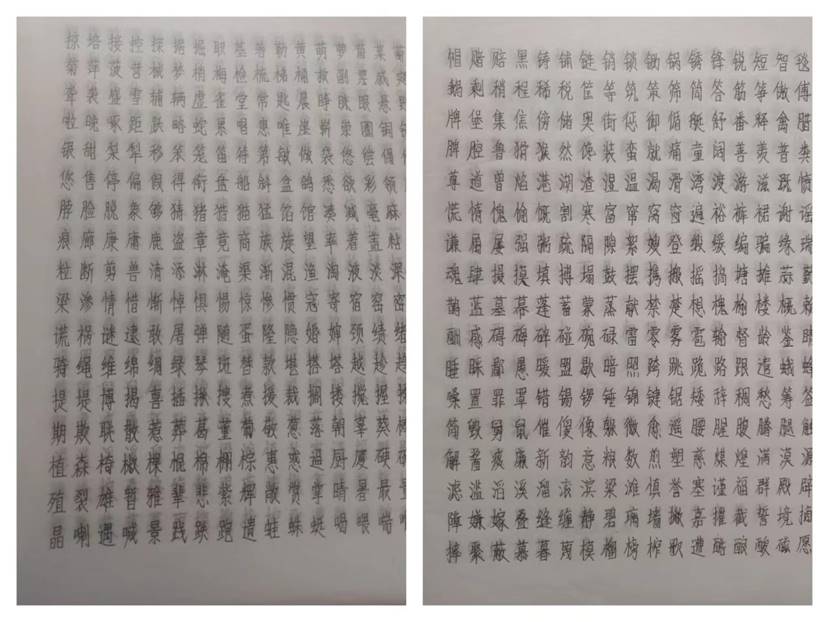 掠培接控探据掘职基著勒黄萌萝菌菜
菊萍菠营械梦梢梅检梳梯桶救副票
聋袭盛雪辅辆虚雀堂常匙晨睁眯眼
啦晚啄距跃略蛇累唱患唯崖崭崇圈铜
银甜梨犁移笨笼笛符第敏做袋悠偿偶
您售停偏假得衔盘船斜盒鸽悉欲彩领
脖脸脱象够猜猪猎猫猛馅馆凑减毫麻
痕廊康庸鹿盗章竟商族旋望率着盖粘
粒断剪兽清添淋淹渠渐混渔淘液淡深
梁渗情惜惭悼惧惕惊惨惯寇寄宿窑密
谎祸谜逮敢屠弹随蛋隆隐婚婶颈绩绪
骑绳维绵绸绿琴斑替款堪搭塔越趁趋
提堤博揭喜插揪搜煮援裁搁搂搅握
期欺联散惹葬葛董葡敬葱落朝辜葵棒
植森椅椒棵棍棉棚棕惠惑逼厨厦硬
殖裂雄暂雅辈悲紫辉敞赏掌晴暑最
晶喇遇喊景践跌跑遗蛙蛛蜓喝喂喘
帽赌赔黑铸铺链销锁锄锅锈锋锐短智毯
鹅剩稍程稀税筐等筑策筛筒答筋筝傲傅
牌堡集焦傍储奥街惩御循艇舒番释禽腊
脾腔鲁猾猴然馋装蛮就痛童阔善羡普粪
尊道曾焰港湖渣湿温渴滑湾渡游滋溉愤
慌惰愧愉慨割寒富窜窝窗遍裕裤裙谢谣
谦属屡强粥疏隔隙絮嫂登缎缓编骗缘瑞
魂肆摄摸填搏塌鼓摆携搬摇搞塘摊蒜
鹊蓝墓幕蓬蓄蒙蒸献禁楚想槐榆楼概赖
酬感碍碑碎碰碗碌雷零雾雹输督龄鉴睛
睡睬鄙愚暖盟歇暗照跨跳跪路跟遣蛾蜂
嗓置罪罩错锡锣锤锦键锯矮辞稠愁筹签
简毁舅鼠催傻像躲微愈遥腰腥腹腾腿触
解酱痰廉新韵意粮数煎塑慈煤煌满漠源
滤滥滔溪溜滚滨粱滩慎誉塞谨福群殿辟
障嫌嫁叠缝缠静碧璃墙撇嘉摧截誓境摘
摔聚蔽慕暮蔑模榴榜榨歌遭酷酿酸磁愿